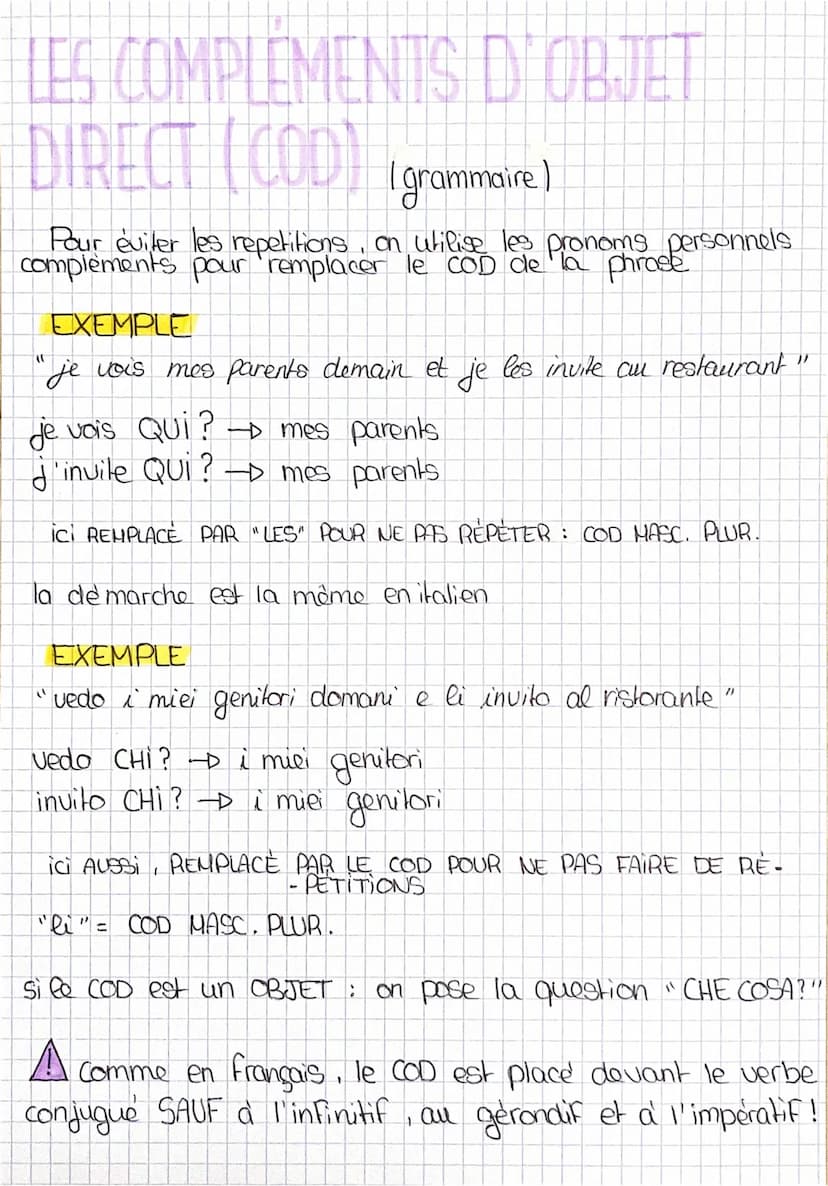 LES COMPLÉMENTS D'OBJET
DIRECT (COD) (grammaire)
Pour éviter les repetitions, on utilise les pronoms personnels
compléments pour remplacer le COD de la phrase
EXEMPLE
"je vois mes parents demain et je les invite au restaurant"
je vois QUI ? → mes parents
j'invite QUI ? → mes parents
ici REMPLACÉ PAR "LES" POUR NE PAS RÉPÉTER : COD MASC. PLUR.
la démarche est la même en italien
EXEMPLE
"vedo i miei genitori domani e li invito al ristorante"
vedo CHI ? → i miei genitori
invito CHI ? → i miei genitori
ici AUSSI, REMPLACÉ PAR LE COD POUR NE PAS FAIRE DE RÉ-
-PÉTITIONS
"li" = COD MASC. PLUR.
si le COD est un OBJET : on pose la question "CHE COSA?"
! Comme en français, le COD est placé devant le verbe
conjugué SAUF à l'infinitif, au gérondif et à l'impératif !